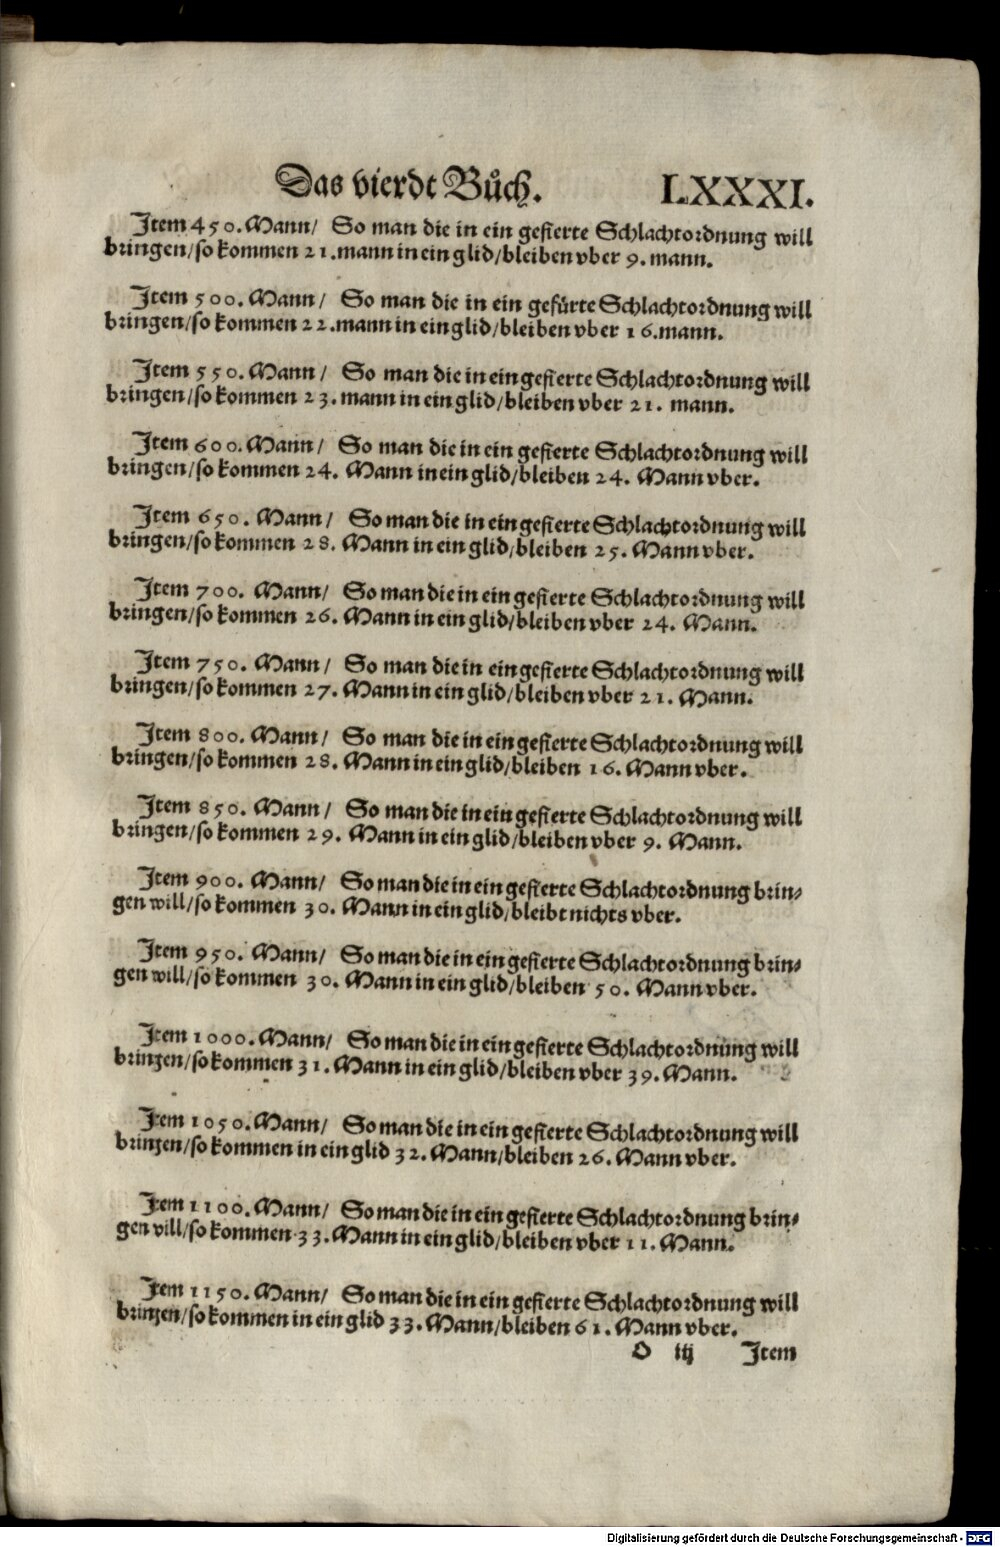 Das vierdt Bůch. LXXXI.
Item 450. Mann/ So man die in ein gefierte Schlachtordnung will
bringen/so kommen 21. mann in ein glid/bleiben vber 9. mann.
Item 500. Mann/ So man die in ein gefürte Schlachtordnung will
bringen/so kommen 22. mann in ein glid/bleiben vber 16. mann.
Item 550. Mann/ So man die in ein gefierte Schlachtordnung will
bringen/so kommen 23. mann in ein glid/bleiben vber 21. mann.
Item 600. Mann/ So man die in ein gefierte Schlachtordnung will
bringen/so kommen 24. Mann in ein glid/bleiben 24. Mann vber.
Item 650. Mann/ So man die in ein gefierte Schlachtordnung will
bringen/so kommen 28. Mann in ein glid/bleiben 25. Mann vber.
Item 700. Mann/ So man die in ein gefierte Schlachtordnung will
bringen/so kommen 26. Mann in ein glid/bleiben vber 24. Mann.
Item 750. Mann/ So man die in ein gefierte Schlachtordnung will
bringen/so kommen 27. Mann in ein glid/bleiben vber 21. Mann.
Item 800. Mann/ So man die in ein gefierte Schlachtordnung will
bringen/so kommen 28. Mann in ein glid/bleiben 16. Mann vber.
Item 850. Mann/ So man die in ein gefierte Schlachtordnung will
bringen/so kommen 29. Mann in ein glid/bleiben vber 9. Mann.
Item 900. Mann/ So man die in ein gefierte Schlachtordnung brin-
gen will/so kommen 30. Mann in ein glid/bleibt nichts vber.
Item 950. Mann/ So man die in ein gefierte Schlachtordnung brin-
gen will/so kommen 30. Mann in ein glid/bleiben 50. Mann vber.
Item 1000. Mann/ So man die in ein gefierte Schlachtordnung will
bringen/so kommen 31. Mann in ein glid/bleiben vber 39. Mann.
Item 1050. Mann/ So man die in ein gefierte Schlachtordnung will
bringen/so kommen in ein glid 32. Mann/bleiben 26. Mann vber.
Item 1100. Mann/ So man die in ein gefierte Schlachtordnung brin-
gen will/so kommen 33. Mann in ein glid/bleiben vber 11. Mann.
Item 1150. Mann/ So man die in ein gefierte Schlachtordnung will
bringen/so kommen in ein glid 33. Mann/bleiben 61. Mann vber.
O iij Item
Digitalisierung gefördert durch die Deutsche Forschungsgemeinschaft - DFG